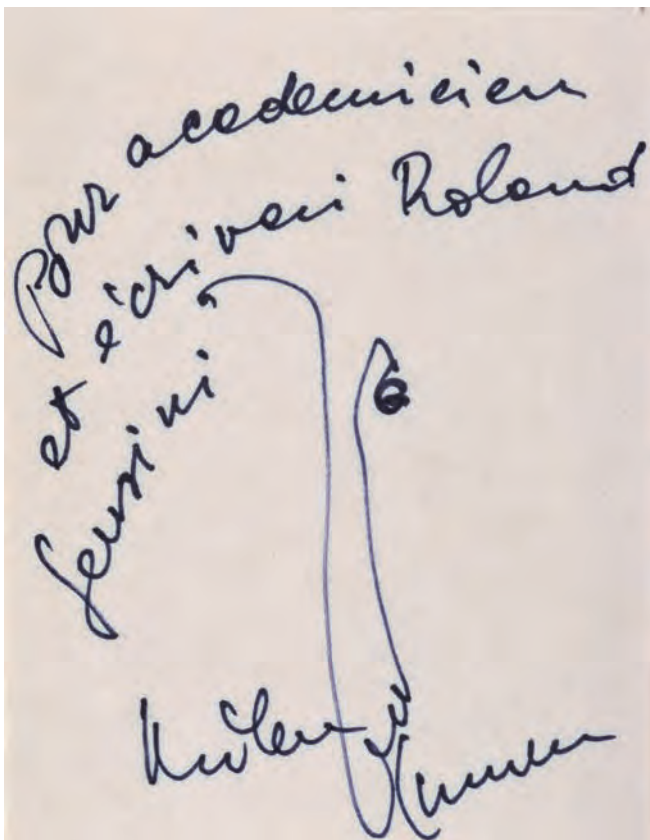 Pour academicien
et écrivain Roland
Milan Kundera